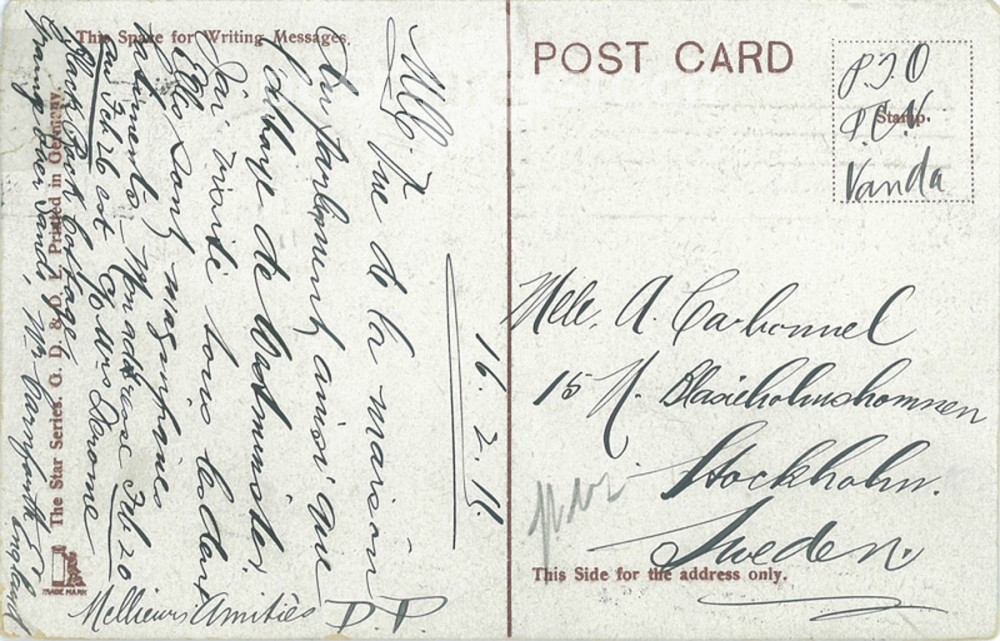 This Space for Writing Messages.
16. 2. 11.
Vue de la maison
du parlement ainsi que
l'abbaye de Westminster.
J'ai visité tous les deux
Elles sont magnifiques
Mon address Feb 20
Feb 26 est c/o Mrs Derome
Black Rock Cottage
England
Mellieurs Amitiés D.D.
The Star Series. G. D. & D. L. Printed in Germany.
TRADE MARK
POST CARD
Stamp.
P.T.O
Vanda
Mlle. A. Carbonnel
15 N. Blasieholmshomnen
Stockholm.
Sweden.
This Side for the address only.